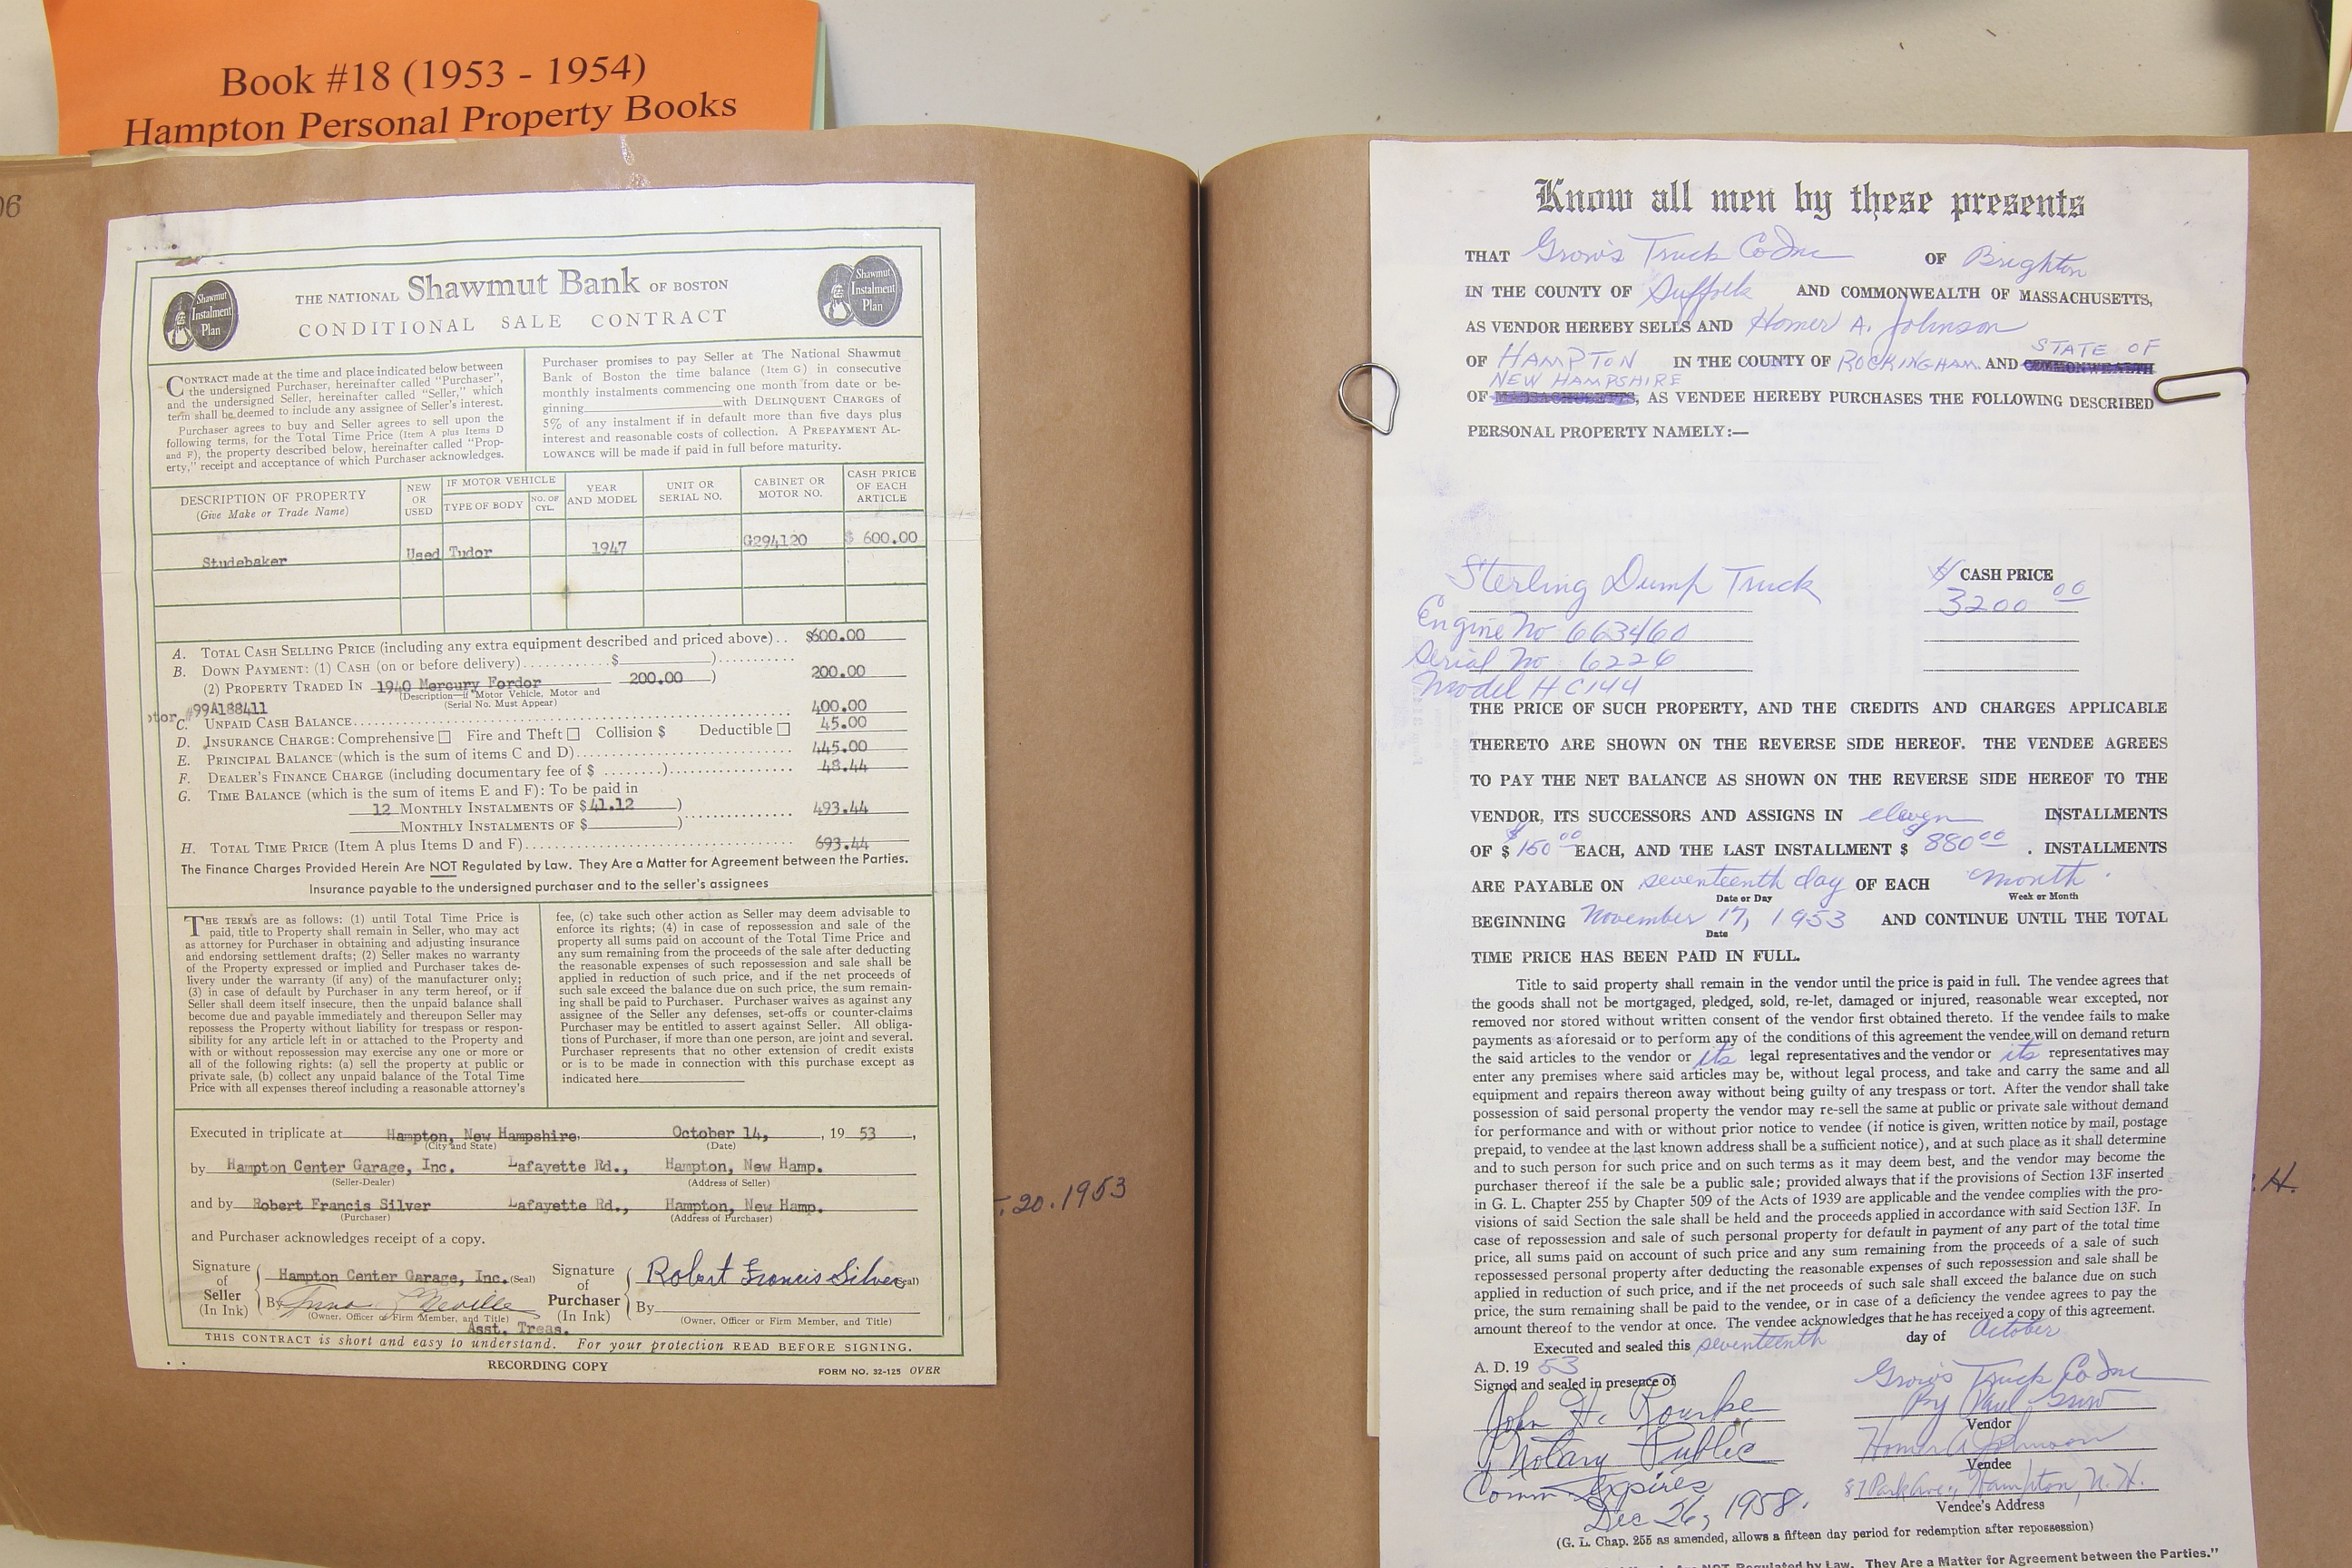 Book #18 (1953 - 1954)
Hampton Personal Property Books
06
Shawmut Instalment Plan
THE NATIONAL Shawmut Bank OF BOSTON
CONDITIONAL SALE CONTRACT
Shawmut Instalment Plan
CONTRACT made at the time and place indicated below between
the undersigned Purchaser, hereinafter called "Purchaser",
and the undersigned Seller, hereinafter called "Seller," which
term shall be deemed to include any assignee of Seller's interest.
Purchaser agrees to buy and Seller agrees to sell upon the
following terms, for the Total Time Price (Item A plus Items D
and F), the property described below, hereinafter called "Prop-
erty," receipt and acceptance of which Purchaser acknowledges.
Purchaser promises to pay Seller at The National Shawmut
Bank of Boston the time balance (Item G) in consecutive
monthly instalments commencing one month from date or be-
ginning with DELINQUENT CHARGES of
5% of any instalment if in default more than five days plus
interest and reasonable costs of collection. A PREPAYMENT AL-
LOWANCE will be made if paid in full before maturity.
DESCRIPTION OF PROPERTY (Give Make or Trade Name) NEW OR USED IF MOTOR VEHICLE TYPE OF BODY NO. OF CYL. YEAR AND MODEL UNIT OR SERIAL NO. CABINET OR MOTOR NO. CASH PRICE OF EACH ARTICLE
Studebaker Used Tudor 1947 G294120 $ 600.00
A. TOTAL CASH SELLING PRICE (including any extra equipment described and priced above).. $600.00
B. DOWN PAYMENT: (1) CASH (on or before delivery)............$ )..........
(2) PROPERTY TRADED IN 1940 Mercury Fordor 200.00 ) 200.00
(Description—if Motor Vehicle, Motor and
Serial No. Must Appear)
otor #99A188411
C. UNPAID CASH BALANCE 400.00
D. INSURANCE CHARGE: Comprehensive □ Fire and Theft □ Collision $ Deductible □ 45.00
E. PRINCIPAL BALANCE (which is the sum of items C and D) 445.00
F. DEALER'S FINANCE CHARGE (including documentary fee of $ ........) 48.44
G. TIME BALANCE (which is the sum of items E and F): To be paid in
12 MONTHLY INSTALMENTS OF $41.12 ) 493.44
MONTHLY INSTALMENTS OF $ )
H. TOTAL TIME PRICE (Item A plus Items D and F) 693.44
The Finance Charges Provided Herein Are NOT Regulated by Law. They Are a Matter for Agreement between the Parties.
Insurance payable to the undersigned purchaser and to the seller's assignees
THE TERMS are as follows: (1) until Total Time Price is
paid, title to Property shall remain in Seller, who may act
as attorney for Purchaser in obtaining and adjusting insurance
and endorsing settlement drafts; (2) Seller makes no warranty
of the Property expressed or implied and Purchaser takes de-
livery under the warranty (if any) of the manufacturer only;
(3) in case of default by Purchaser in any term hereof, or if
Seller shall deem itself insecure, then the unpaid balance shall
become due and payable immediately and thereupon Seller may
repossess the Property without liability for trespass or respon-
sibility for any article left in or attached to the Property and
with or without repossession may exercise any one or more or
all of the following rights: (a) sell the property at public or
private sale, (b) collect any unpaid balance of the Total Time
Price with all expenses thereof including a reasonable attorney's
fee, (c) take such other action as Seller may deem advisable to
enforce its rights; (4) in case of repossession and sale of the
property all sums paid on account of the Total Time Price and
any sum remaining from the proceeds of the sale after deducting
the reasonable expenses of such repossession and sale shall be
applied in reduction of such price, and if the net proceeds of
such sale exceed the balance due on such price, the sum remain-
ing shall be paid to Purchaser. Purchaser waives as against any
assignee of the Seller any defenses, set-offs or counter-claims
Purchaser may be entitled to assert against Seller. All obliga-
tions of Purchaser, if more than one person, are joint and several.
Purchaser represents that no other extension of credit exists
or is to be made in connection with this purchase except as
indicated here
Executed in triplicate at Hampton, New Hampshire October 14, , 19 53 ,
(City and State) (Date)
by Hampton Center Garage, Inc. Lafayette Rd., Hampton, New Hamp.
(Seller-Dealer) (Address of Seller)
and by Robert Francis Silver Lafayette Rd., Hampton, New Hamp.
(Purchaser) (Address of Purchaser)
and Purchaser acknowledges receipt of a copy.
Signature of Seller (In Ink) Hampton Center Garage, Inc. (Seal)
By Neville
(Owner, Officer or Firm Member, and Title)
Asst. Treas.
Signature of Purchaser (In Ink) Robert Francis Silver (Seal)
By
(Owner, Officer or Firm Member, and Title)
THIS CONTRACT is short and easy to understand. For your protection READ BEFORE SIGNING.
RECORDING COPY
FORM NO. 32-125 OVER
. 20. 1953
Know all men by these presents
THAT Grow's Truck Co Inc OF Brighton
IN THE COUNTY OF Suffolk AND COMMONWEALTH OF MASSACHUSETTS,
AS VENDOR HEREBY SELLS AND Homer A. Johnson
STATE OF
OF HAMPTON IN THE COUNTY OF ROCKINGHAM AND COMMONWEALTH
NEW HAMPSHIRE
OF MASSACHUSETTS, AS VENDEE HEREBY PURCHASES THE FOLLOWING DESCRIBED
PERSONAL PROPERTY NAMELY:—
Sterling Dump Truck $ CASH PRICE
3200 00
Engine No 663460
Serial No 6226
Model HC144
THE PRICE OF SUCH PROPERTY, AND THE CREDITS AND CHARGES APPLICABLE
THERETO ARE SHOWN ON THE REVERSE SIDE HEREOF. THE VENDEE AGREES
TO PAY THE NET BALANCE AS SHOWN ON THE REVERSE SIDE HEREOF TO THE
VENDOR, ITS SUCCESSORS AND ASSIGNS IN eleven INSTALLMENTS
OF $ 150 00 EACH, AND THE LAST INSTALLMENT $ $880 00 . INSTALLMENTS
ARE PAYABLE ON seventeenth day OF EACH month.
Date or Day Week or Month
BEGINNING November 17, 1953 AND CONTINUE UNTIL THE TOTAL
Date
TIME PRICE HAS BEEN PAID IN FULL.
Title to said property shall remain in the vendor until the price is paid in full. The vendee agrees that
the goods shall not be mortgaged, pledged, sold, re-let, damaged or injured, reasonable wear excepted, nor
removed nor stored without written consent of the vendor first obtained thereto. If the vendee fails to make
payments as aforesaid or to perform any of the conditions of this agreement the vendee will on demand return
the said articles to the vendor or its legal representatives and the vendor or its representatives may
enter any premises where said articles may be, without legal process, and take and carry the same and all
equipment and repairs thereon away without being guilty of any trespass or tort. After the vendor shall take
possession of said personal property the vendor may re-sell the same at public or private sale without demand
for performance and with or without prior notice to vendee (if notice is given, written notice by mail, postage
prepaid, to vendee at the last known address shall be a sufficient notice), and at such place as it shall determine
and to such person for such price and on such terms as it may deem best, and the vendor may become the
purchaser thereof if the sale be a public sale; provided always that if the provisions of Section 13F inserted
in G. L. Chapter 255 by Chapter 509 of the Acts of 1939 are applicable and the vendee complies with the pro-
visions of said Section the sale shall be held and the proceeds applied in accordance with said Section 13F. In
case of repossession and sale of such personal property for default in payment of any part of the total time
price, all sums paid on account of such price and any sum remaining from the proceeds of a sale of such
repossessed personal property after deducting the reasonable expenses of such repossession and sale shall be
applied in reduction of such price, and if the net proceeds of such sale shall exceed the balance due on such
price, the sum remaining shall be paid to the vendee, or in case of a deficiency the vendee agrees to pay the
amount thereof to the vendor at once. The vendee acknowledges that he has received a copy of this agreement.
Executed and sealed this seventeenth day of October
A. D. 19 53
Signed and sealed in presence of
Grow's Truck Co Inc
John H. Rourke By Paul Grow
Vendor
Notary Public Homer A Johnson
Vendee
Comm Expires 87 Park Ave., Hampton, N. H.
Dec 26, 1958. Vendee's Address
(G. L. Chap. 255 as amended, allows a fifteen day period for redemption after repossession)
NOT Regulated by Law. They Are a Matter for Agreement between the Parties."
. H.